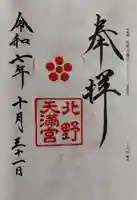 奉拝
北野
天満宮
令和七年十月三十一日